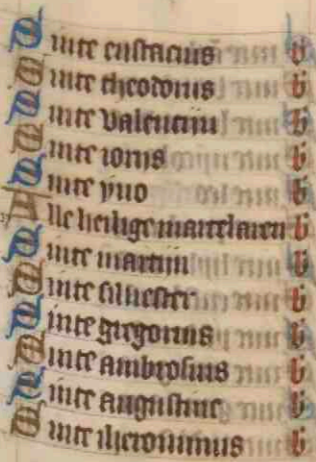 Sinte eustacius b
Sinte theodorus b
Sinte valentijn b
Sinte iorijs b
Sinte yuo b
Alle heilige martelaren b
Sinte martijn b
Sinte siluester b
Sinte gregorius b
Sinte ambrosius b
Sinte augustinus b
Sinte iheronimus b